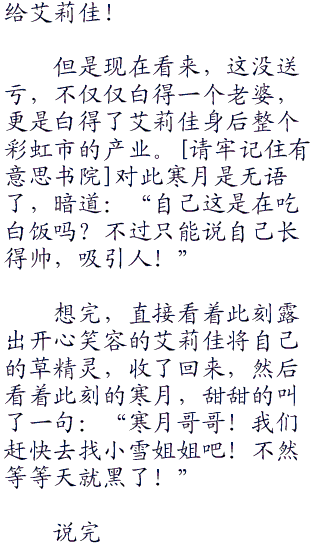 给艾莉佳！
但是现在看来，这没送
亏，不仅仅白得一个老婆，
更是白得了艾莉佳身后整个
彩虹市的产业。[请牢记住有
意思书院]对此寒月是无语
了，暗道：“自己这是在吃
白饭吗？不过只能说自己长
得帅，吸引人！”
想完，直接看着此刻露
出开心笑容的艾莉佳将自己
的草精灵，收了回来，然后
看着此刻的寒月，甜甜的叫
了一句：“寒月哥哥！我们
赶快去找小雪姐姐吧！不然
等等天就黑了！”
说完